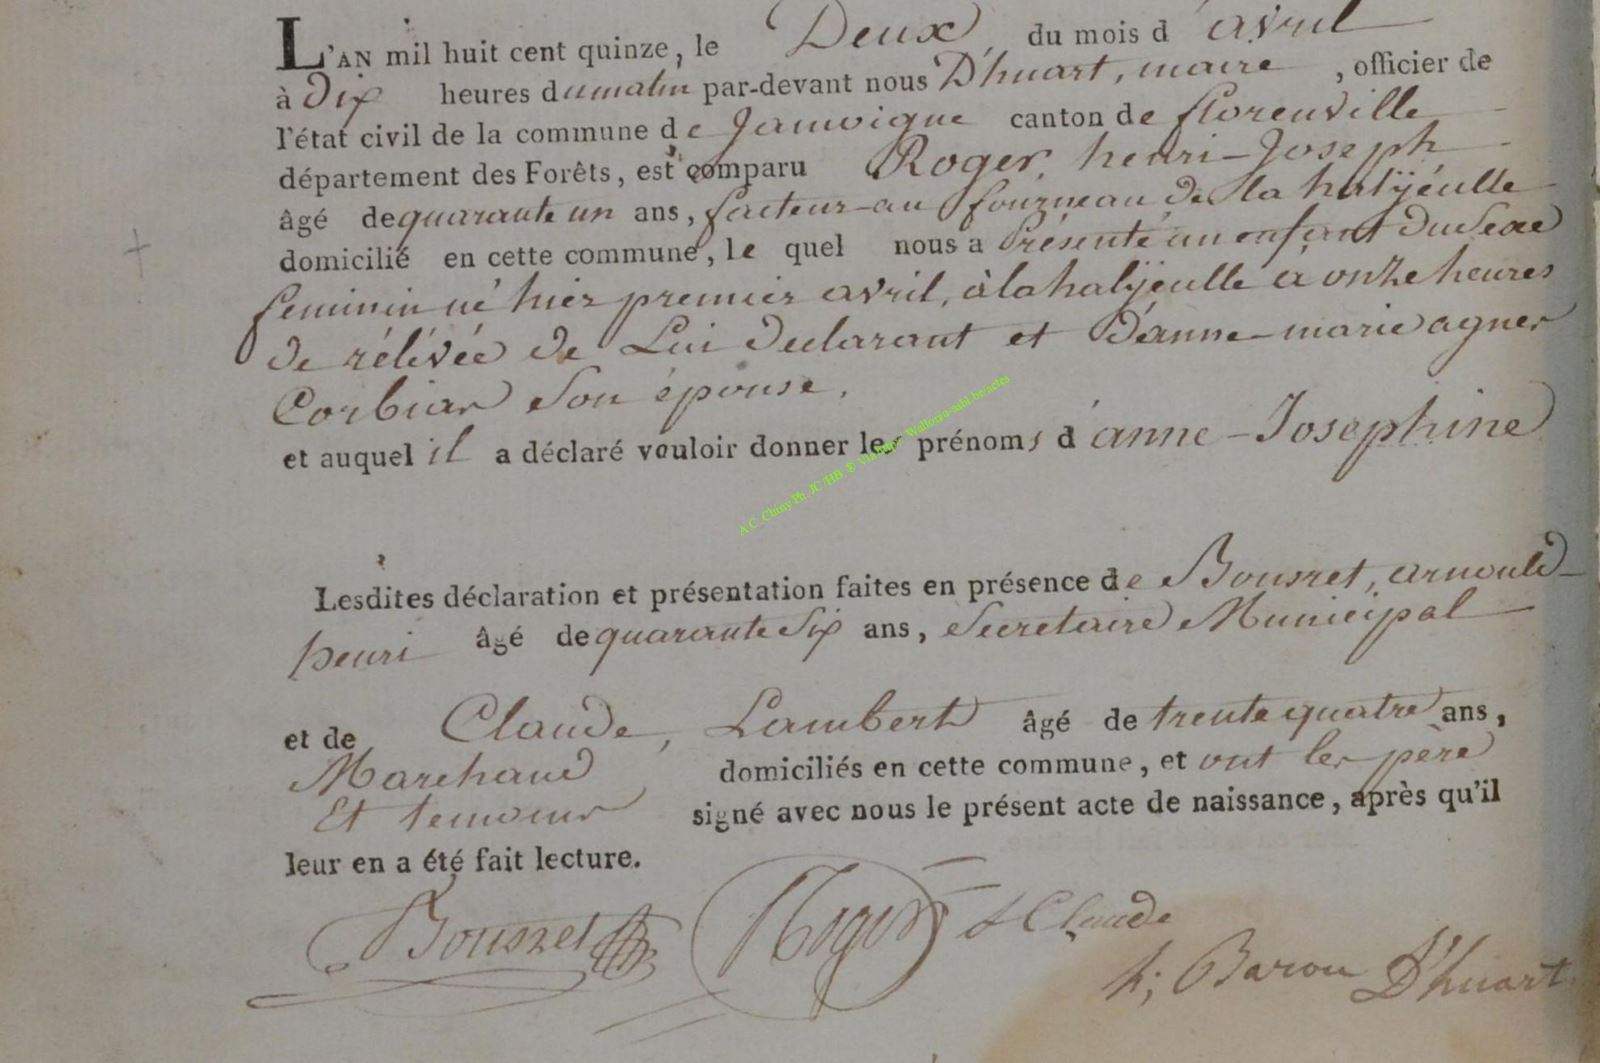 L'AN mil huit cent quinze, le Deux du mois d'avril
à Dix heures du matin par-devant nous D'huart, maire, officier de
l'état civil de la commune de Jamoigne canton de florenville
département des Forêts, est comparu Roger, henri-Joseph
âgé de quarante un ans, facteur au fourneau de la hatÿeulle
domicilié en cette commune, le quel nous a Présenté un enfant du Sexe
feminin né hier premier avril, à la hatÿeulle à onze heures
de rélévée de Lui declarant et d'anne-marie agnes
Corbiar Son épouse.
et auquel il a déclaré vouloir donner les prénoms d'anne-Josephine
A.C. Chiny Ph. JC/HB
Lesdites déclaration et présentation faites en présence de Bousret, arnould-
henri âgé de quarante Six ans, Secretaire Municipal
et de Claude, Lambert âgé de trente quatre ans,
Marchand domiciliés en cette commune, et ont les père
Et temoins signé avec nous le présent acte de naissance, après qu'il
leur en a été fait lecture.
Bousret Roger L Claude
h; Baron D'huart